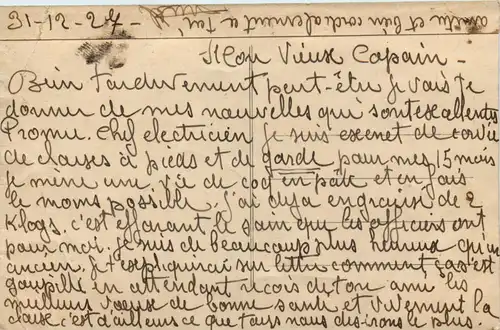 31-12-24 -
amitié et bien cordialement à toi
Mon Vieux Copain -
Bien Tardivement peut-être je vais te
donner de mes nouvelles qui sont excellentes
Promu. Chef electricien je suis exenet de corvée
de classes à pieds et de garde pour mes 15 mois
je mène une vie de coq en pâte et en fais
le moins possible. J'ai deja engraissé de 2
Klogs, c'est effarant le soin que les officiers ont
pour moi. Je suis de beaucoup plus heureux qu'un
ancien. Je t'expliquerai sur lettre comment ça s'est
goupillé en attendant recois de ton ami les
meilleurs voeux de bonne santé et vivement la
classe c'est d'ailleurs ce que tous nous desirons le plus.